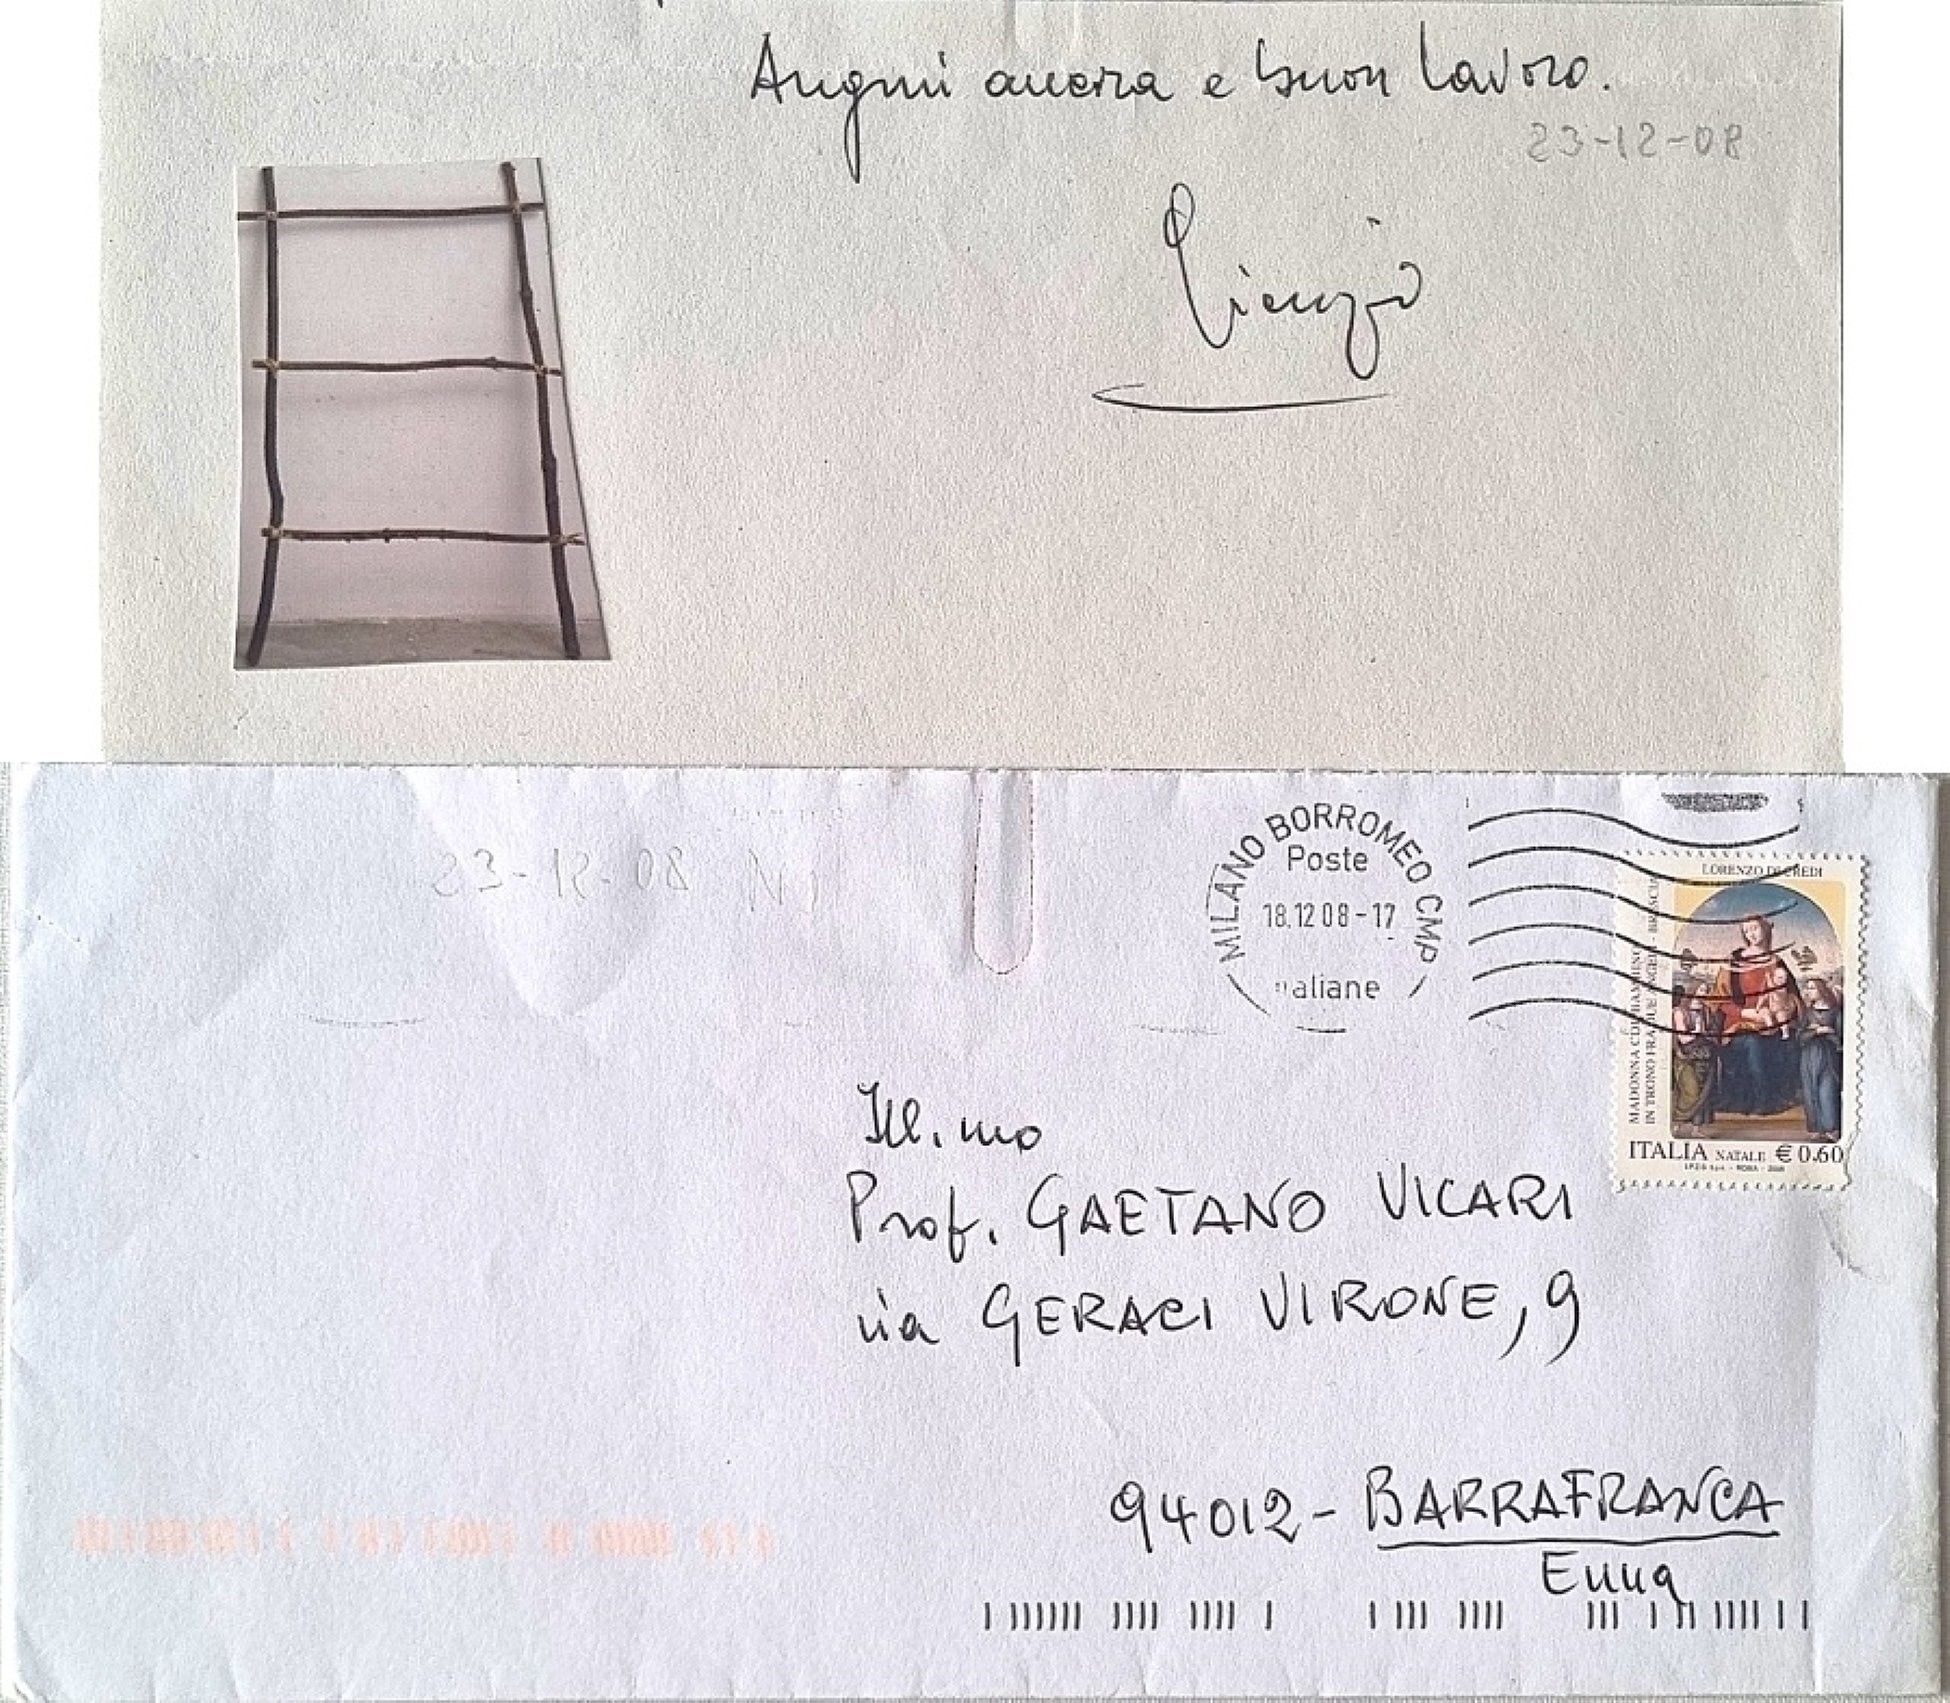 Auguri ancora e buon lavoro.
23-12-08
23-12-08
MILANO BORROMEO CMP
Poste
18.12 08-17
aliane
LORENZO DI CREDI
MADONNA COL BAMBINO
IN TRONO FRA DUE ANGELI - BRESCIA
ITALIA NATALE € 0.60
I.P.Z.S. S.p.A. - ROMA - 2008
Ill.mo
Prof. GAETANO VICARI
via GERACI VIRONE, 9
94012 - BARRAFRANCA
Enna